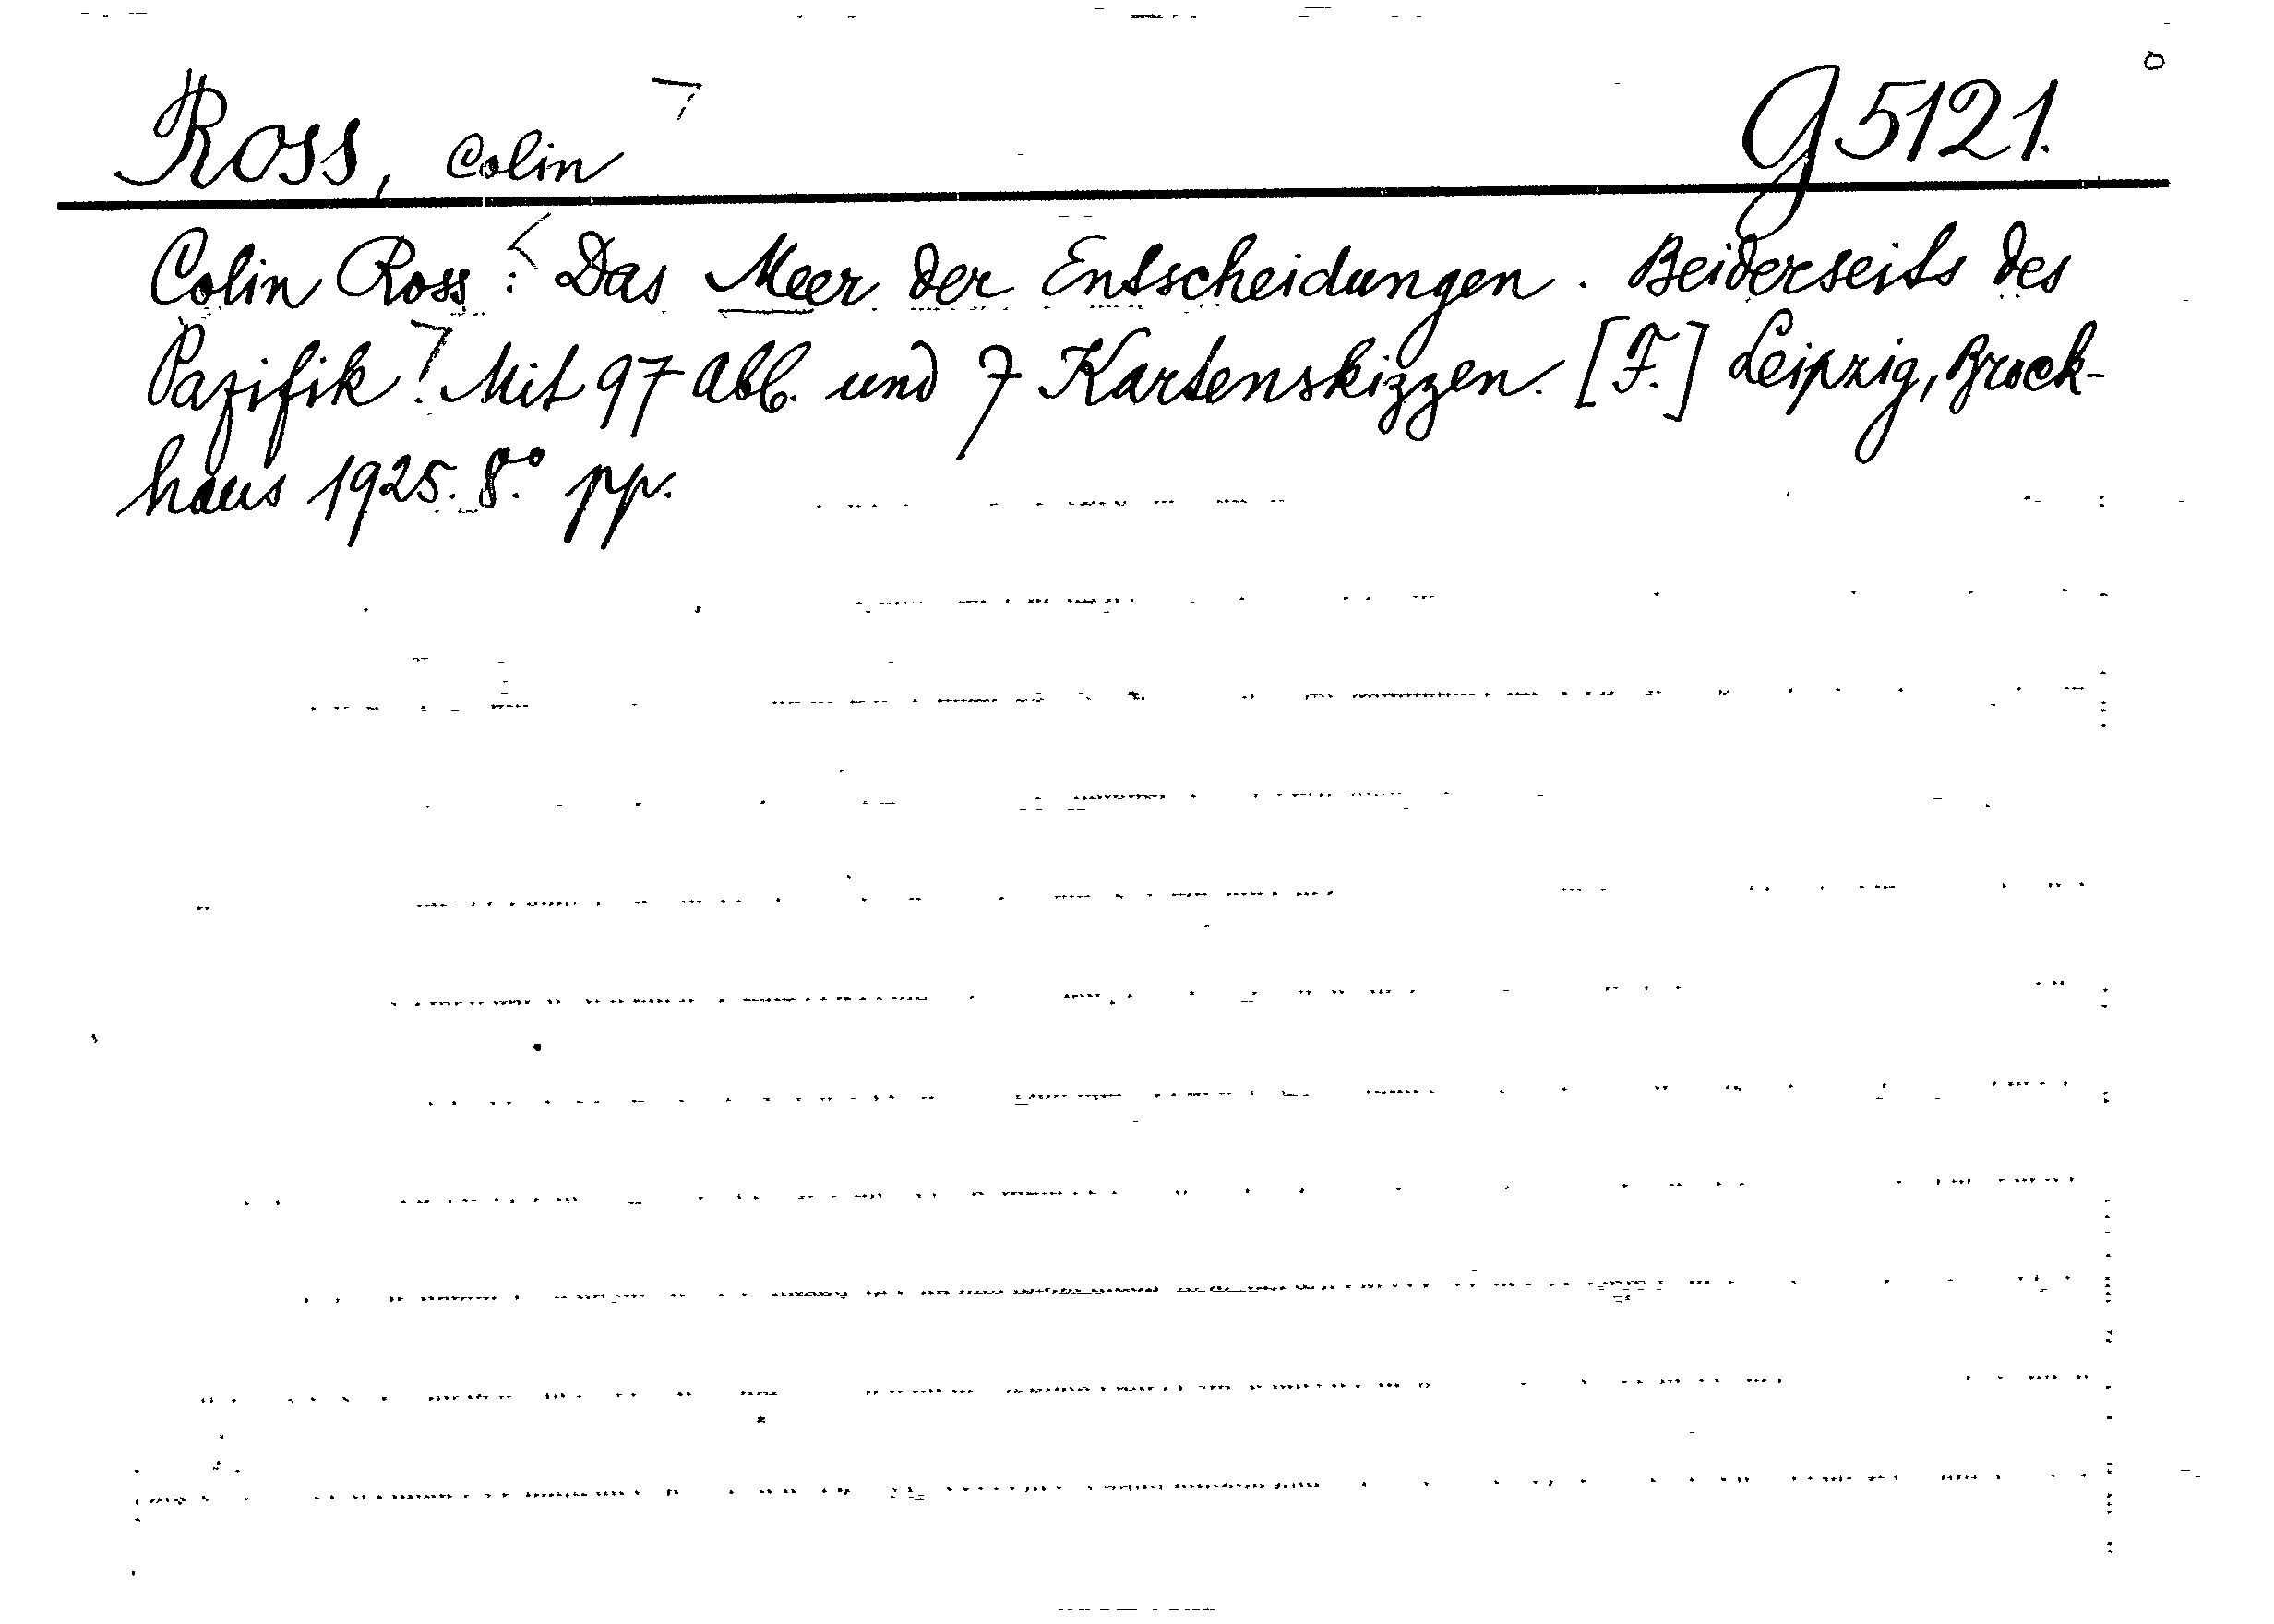 Ross, Colin G 5121.
Colin Ross: Das Meer der Entscheidungen. Beiderseits des
Pazifik. Mit 97 Abb. und 7 Kartenskizzen. [F.] Leipzig, Brock-
haus 1925. 8.° pp.